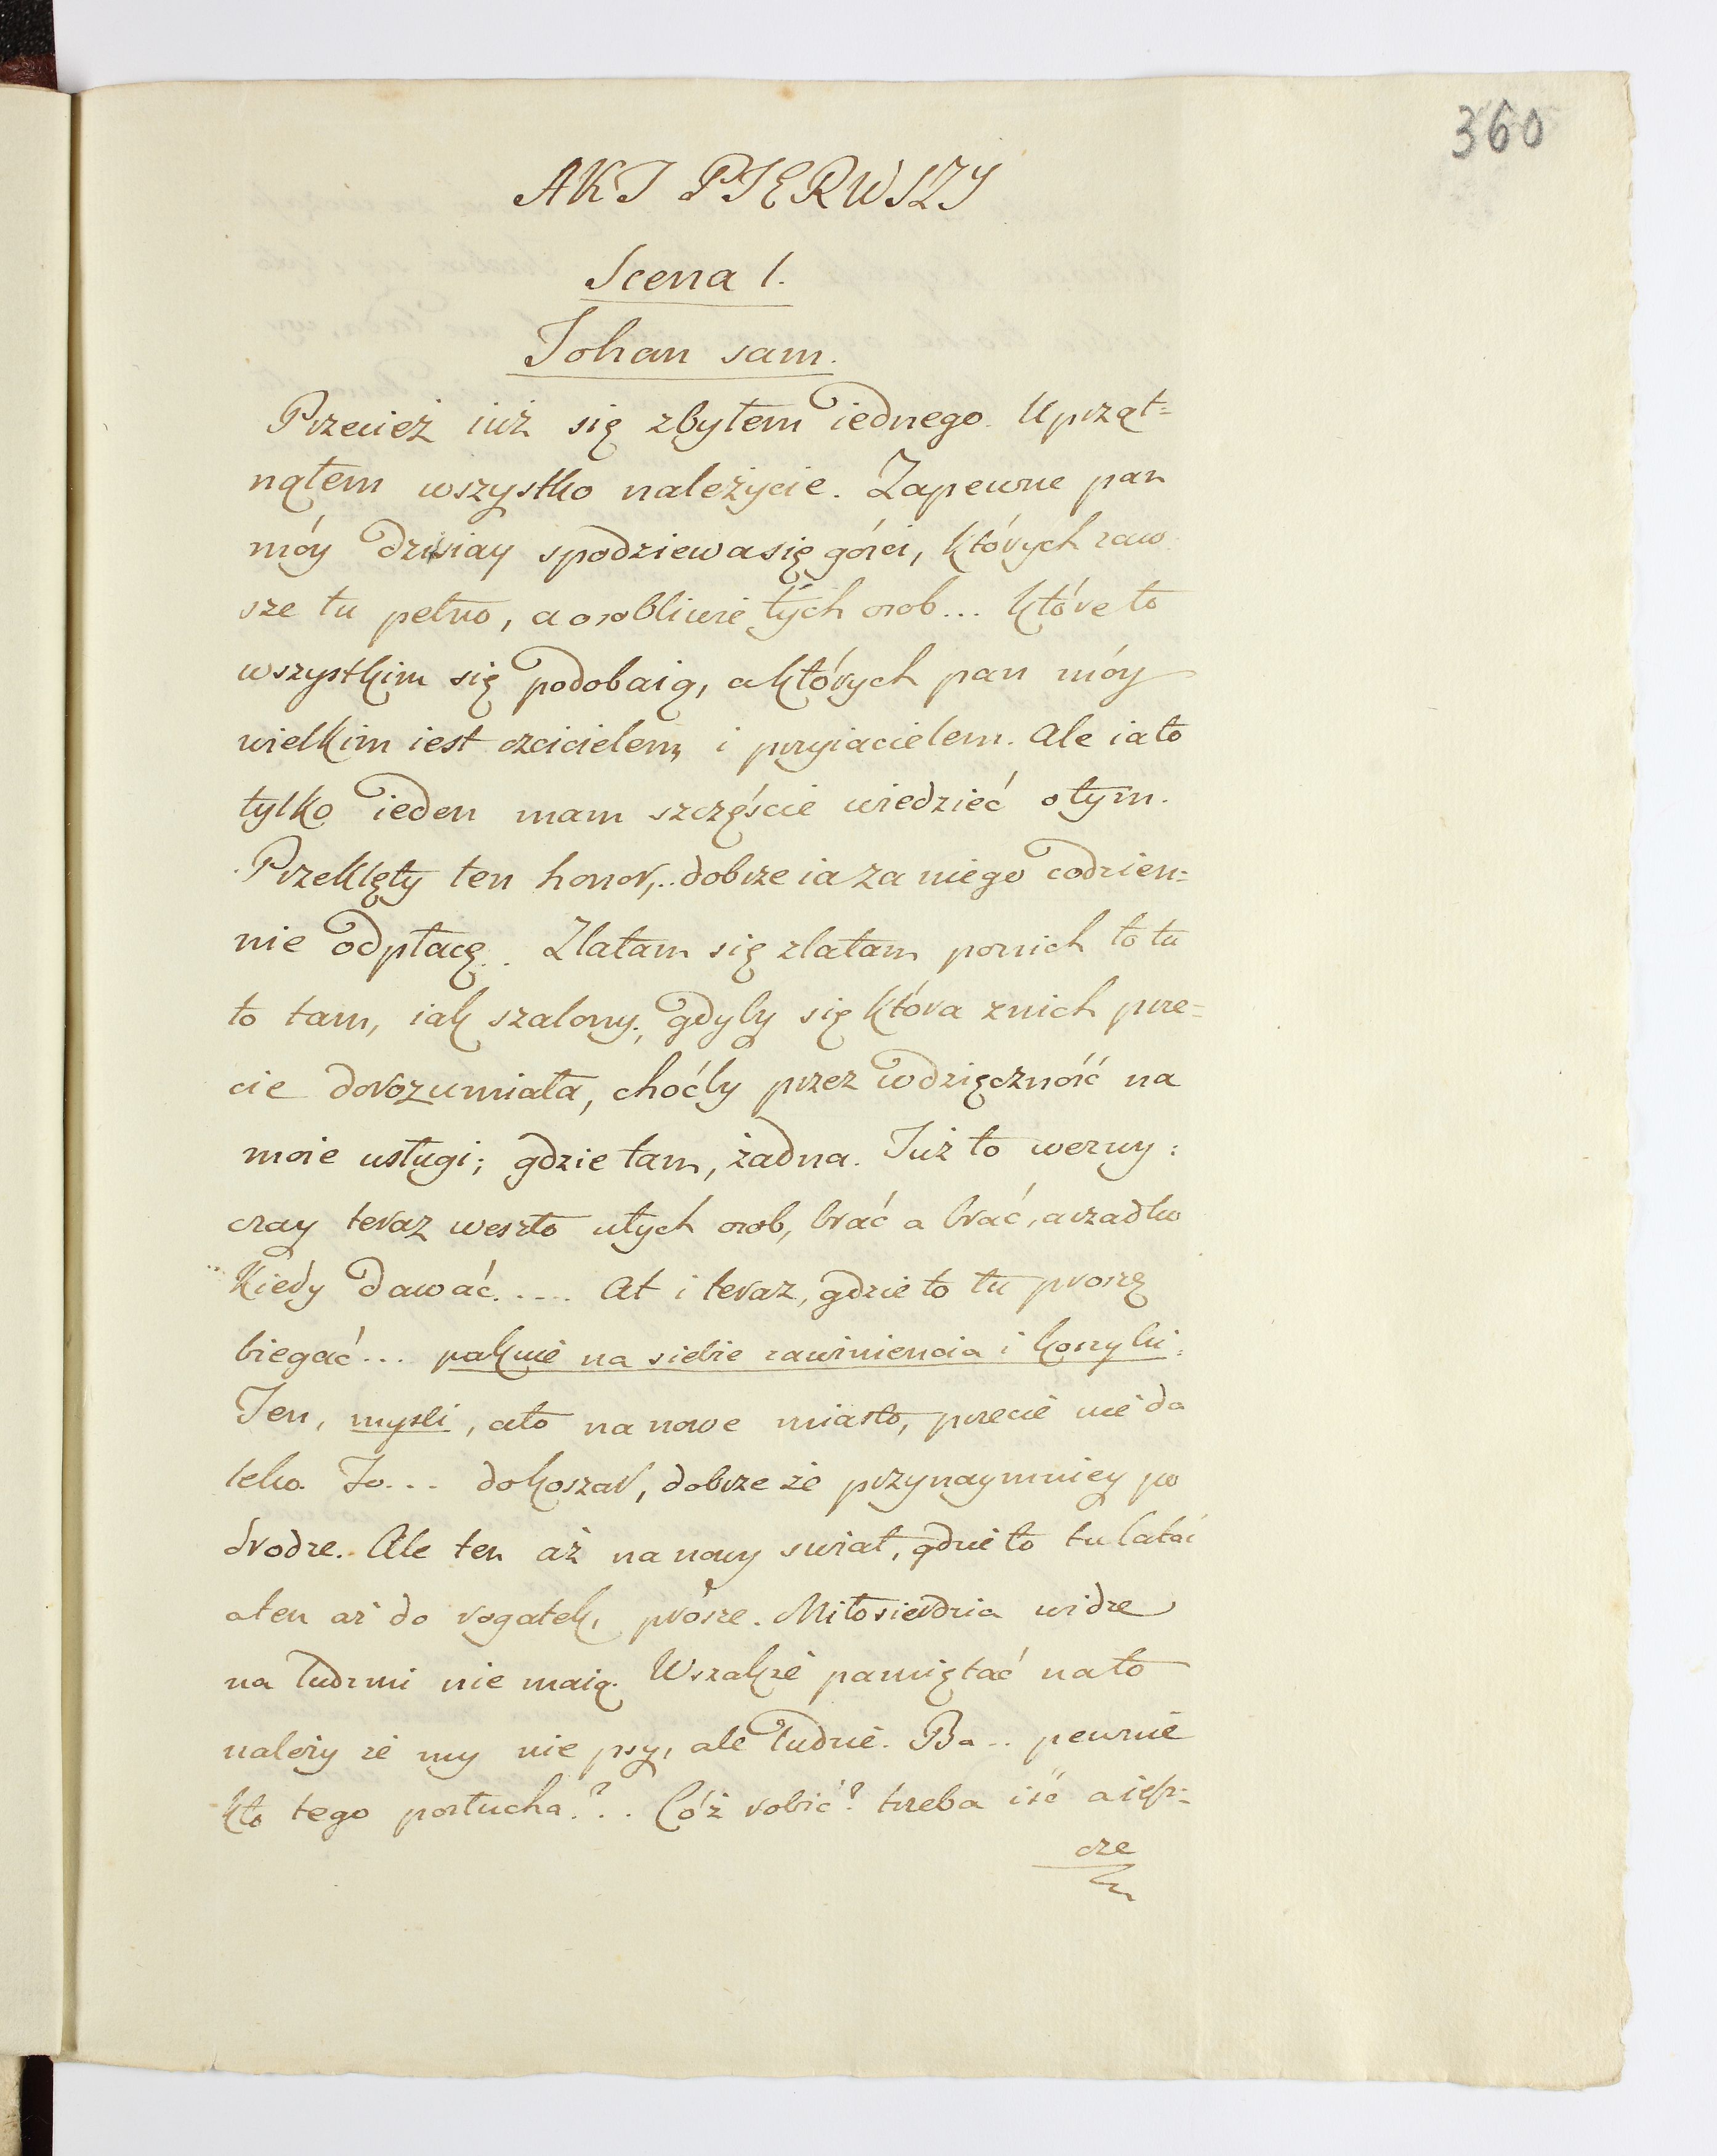 360
AKT PIERWSZY
Scena 1.
Johan sam.
Przecież iuż się zbyłem iednego. Uprząt=
nąłem wszystko należycie. Zapewne pan
móy dzisiay spodziewa się gości, których zaw
sze tu pełno, a osobliwie tych osob... które to
wszystkim się podobaią, a których pan móy
wielkim iest czcicielem i przyiacielem. Ale ia to
tylko ieden mam szczęście wiedzieć o tym.
Przeklęty ten honor,.. dobrze ia za niego codzien=
nie odpłacę.. Zlatam się zlatam po nich to tu
to tam, iak szalony; gdyby się która z nich prze=
cie dorozumiała, choćby przez wdzięczność na
moie usługi; gdzie tam, żadna. Już to w zwy:
czay teraz weszło u tych osob, brać a brać, a rzadko
kiedy dawać..... At i teraz, gdzie to tu proszę
biegać... na siebie zawiniencia i
Ten, mysli, a to na nowe miasto, przecie nie da
leko. To... do koszar, dobrze że przynaymniey po
drodze. Ale ten aż na nowy swiat, gdzie to tu latać
a ten aż do rogatek, prosze. Miłosierdzia widze
na ludzmi nie maią. Wszakże pamiętać na to
należy że my nie psy, ale ludzie. Ba.. pewnie
kto tego posłucha?.. Cóż robić? trzeba iść a ieſz=
cze